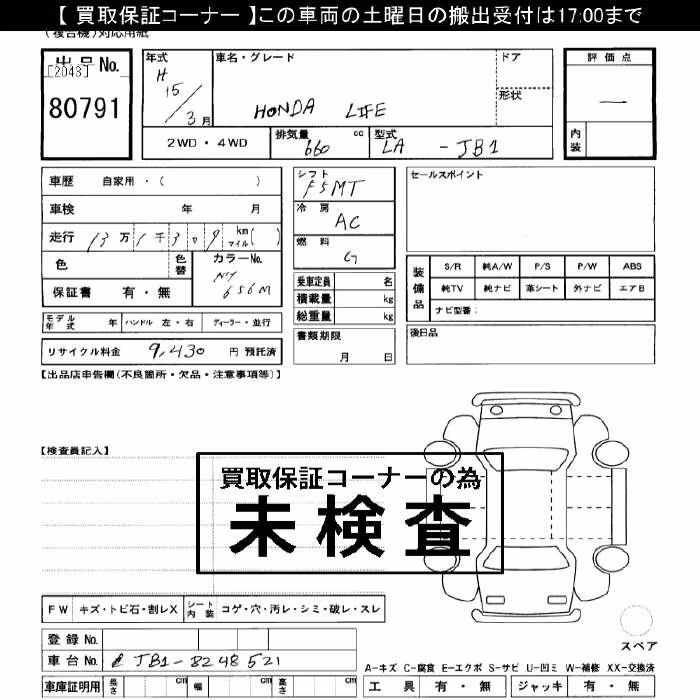 【 買取保証コーナー 】この車両の土曜日の搬出受付は17:00まで
(複合機)対応用紙
出品No.
[2043]
80791
年式
H
15/3月
車名・グレード
HONDA LIFE
ドア
形状
評価点
―
内装
2WD・4WD
排気量 cc
660
型式
LA - JB1
車歴 自家用・( )
車検 年 月
走行 13万1千309 km マイル( )
色
色替
カラーNo.
656M
保証書 有・無
モデル年式 年 ハンドル 左・右 ディーラー・並行
リサイクル料金 9,430 円 預託済
シフト
F5MT
冷房
AC
燃料
G
乗車定員 名
積載量 kg
総重量 kg
書類期限
月 日
セールスポイント
装備品
S/R 純A/W P/S P/W ABS
純TV 純ナビ 革シート 外ナビ エアB
ナビ型番:
後日品
【出品店申告欄(不良箇所・欠品・注意事項等)】
【検査員記入】
買取保証コーナーの為
未検査
FW キズ・トビ石・割レX シート内装 コゲ・穴・汚レ・シミ・破レ・スレ
スペア
登録No.
車台No. JB1-8248521
車庫証明用 長さ cm 幅 cm 高さ cm
A-キズ C-腐食 E-エクボ S-サビ U-凹ミ W-補修 XX-交換済
工具 有・無 ジャッキ 有・無